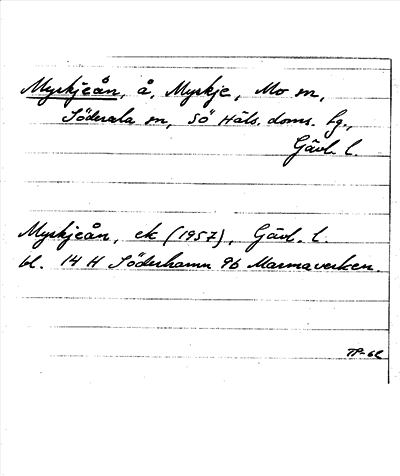 Myskjeån, å, Myskje, Mo sn,
Söderala sn, Sö Häls. doms. fg.,
Gävl. l.
Myskjeån, ek (1957), Gävl. l.
bl. 14 H Söderhamn 9b Marmaverken.
TP-62